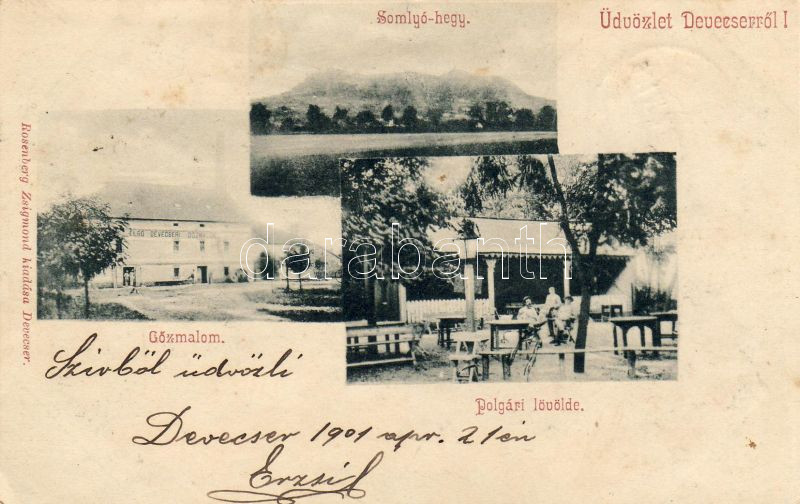 Somlyó-hegy.
Üdvözlet Devecserről!
DEVECSERI
Gőzmalom.
Polgári lövölde.
Rosenberg Zsigmond kiadása Devecser.
Szivből üdvözli
Devecser 1901 apr. 21én
Erzsi
darabanth.com